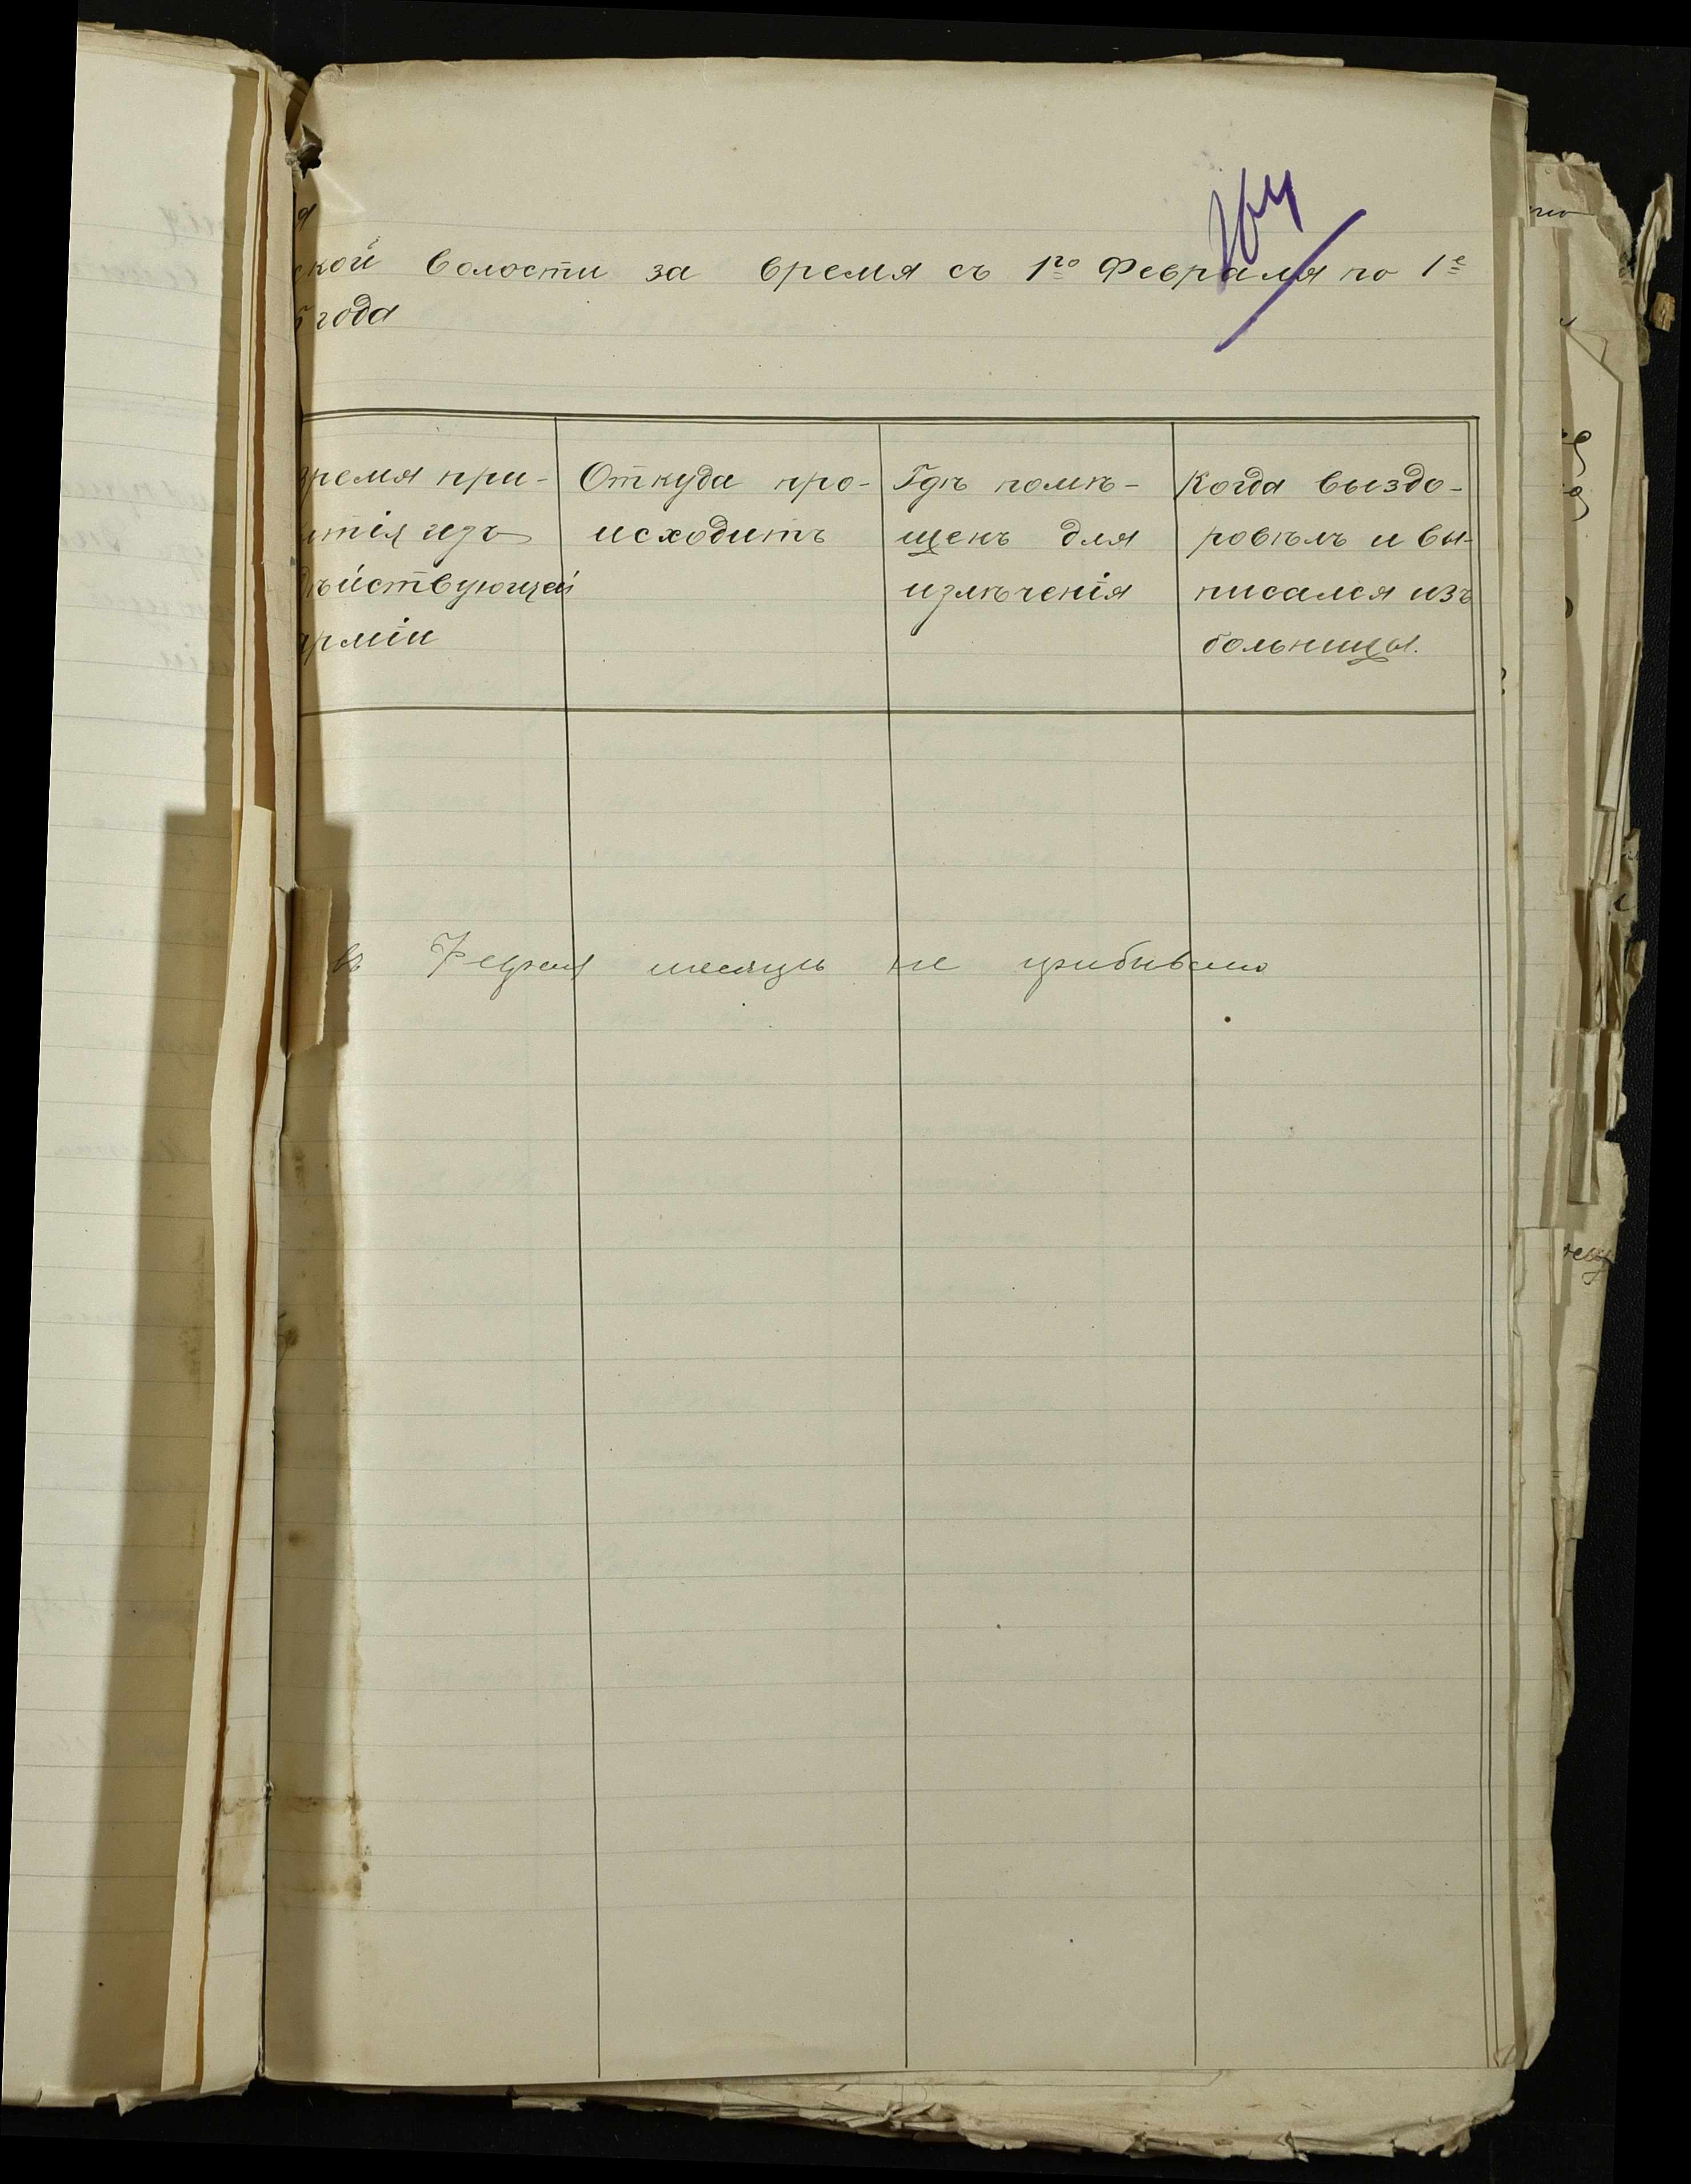 164
я
ской волости за время съ 1го Февраля по 1е
5 года
время при-
ытія изъ
дѣйствующей
арміи
Откуда про-
исходитъ
Гдѣ помѣ-
щенъ для
излѣченія
Когда выздо-
ровѣлъ и вы-
писался изъ
больницы.
въ Феврал месяцъ не прибывало